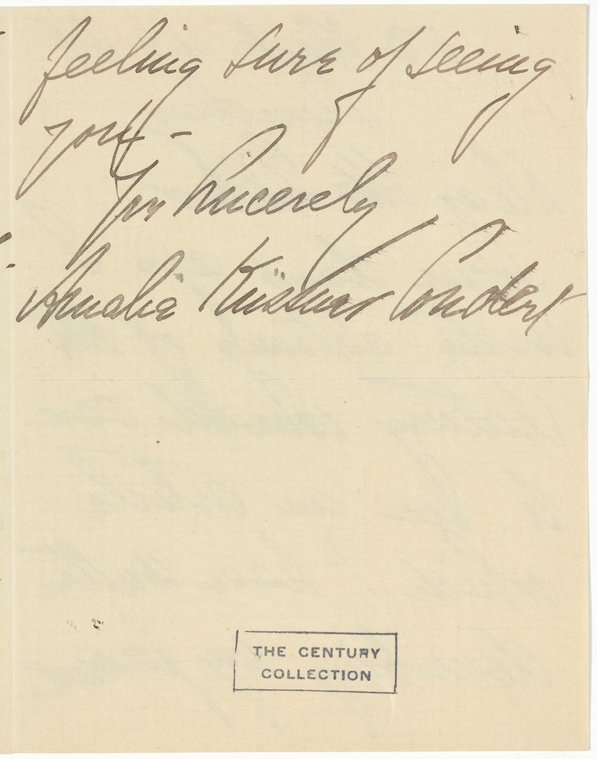 feeling sure of seeing
you —
Yrs Sincerely
Amalia Küssner Coudert
THE CENTURY
COLLECTION